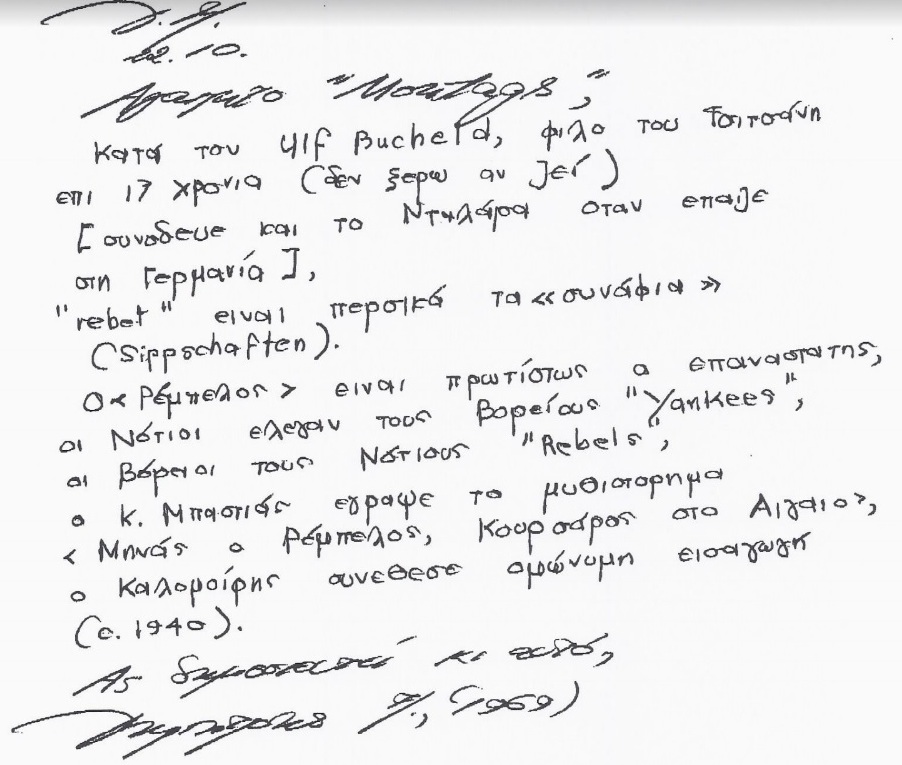 22.10.
Αγαπητο "Montags",
κατα τον Ulf Bucheld, φιλο του Τσιτσάνη
επι 17 χρονια (δεν ξερω αν ζεί)
[συνοδευε και το Νταλάρα οταν επαιζε
στη Γερμανία],
"rebet" ειναι περσικά τα «συνάφια»
(Sippschaften).
Ο <Ρέμπελος> ειναι πρωτίστως ο επαναστατης,
οι Νότιοι ελεγαν τους Βορείους "Yankees",
οι Βόρειοι τους Νότιους "Rebels",
ο κ. Μπαστιάς εγραψε το μυθιστορημα
<Μηνάς ο Ρέμπελος, Κουρσάρος στο Αιγαιο>,
ο Καλομοίρης συνεθεσε ομώνυμη εισαγωγή
(c. 1940).
Ας δημοσιευτεί κι αυτό,
(1969)